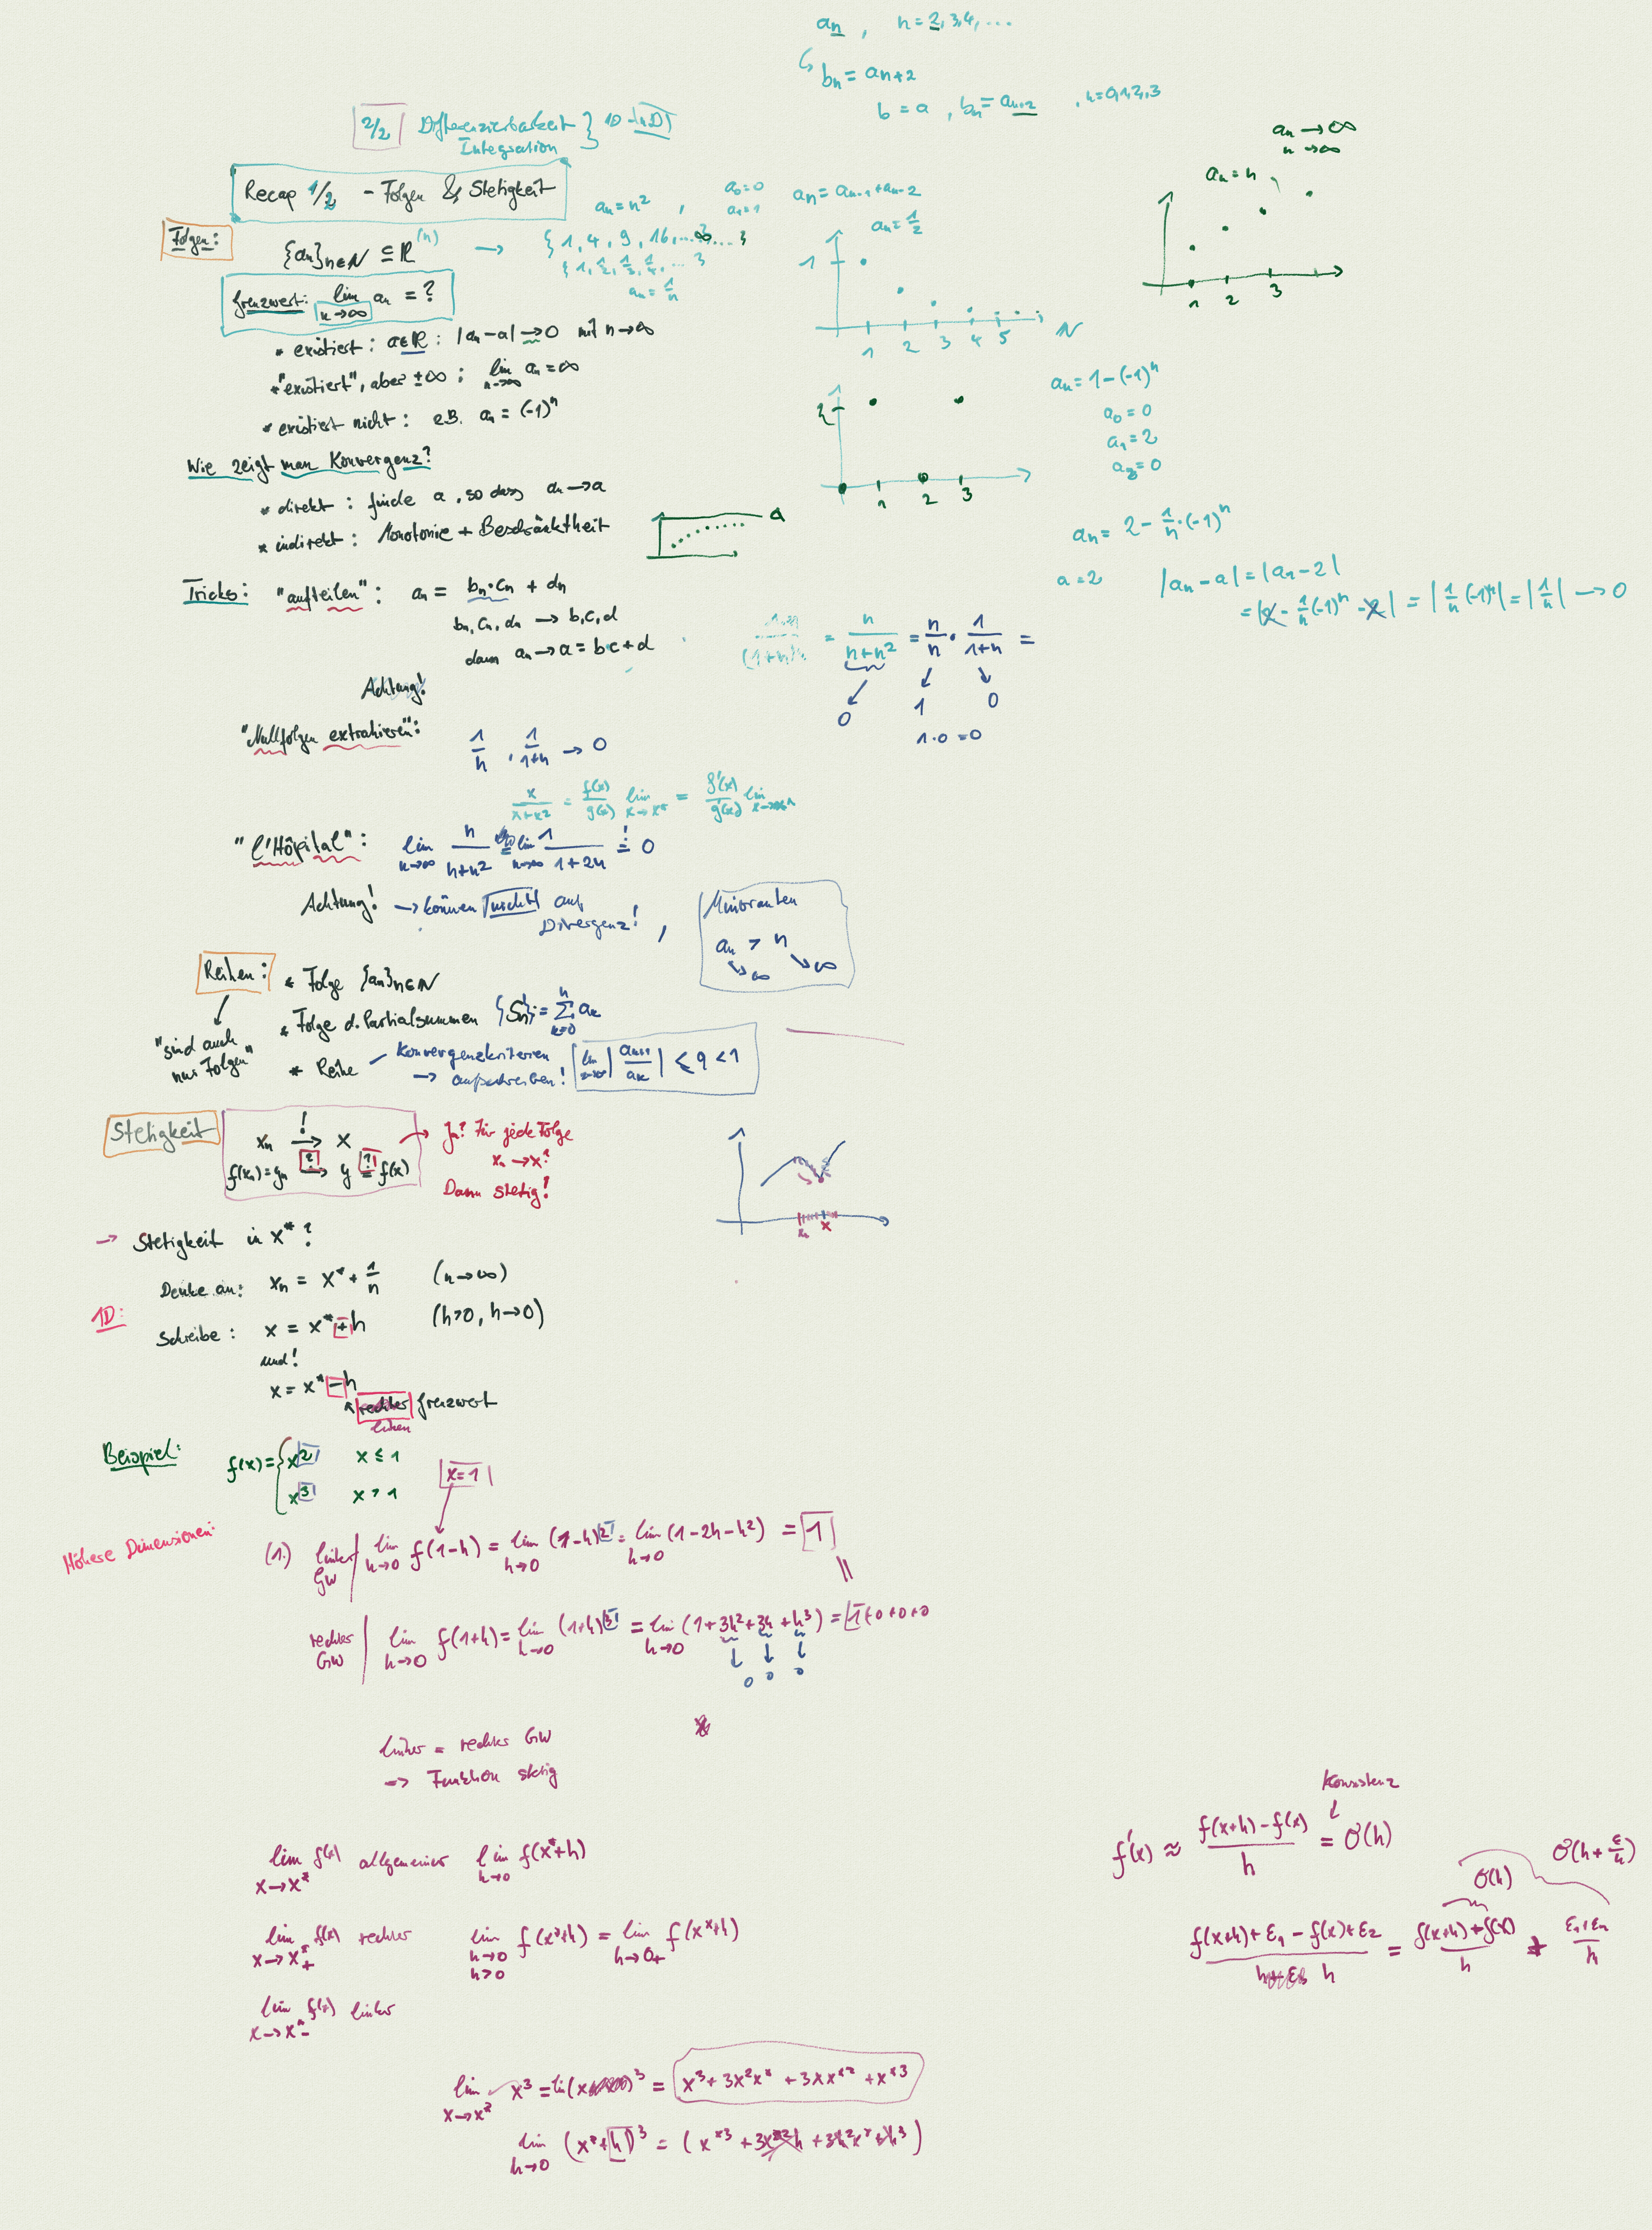 an , n = 2, 3, 4, ...
↳ bn = an+2
b = a , bn = an+2 , n = 0, 1, 2, 3
2/2 Differenzierbarkeit } 1D - nD
Integration
an → ∞
n → ∞
an = n
1 2 3
Recap 1/2 - Folgen & Stetigkeit
an = n² , a0 = 0 an = an-1 + an-2
a1 = 1
Folgen: {an}n∈N ⊆ ℝ(n) → {1, 4, 9, 16, ... ∞ ... }
{1, 1/2, 1/3, 1/4, ... }
an = 1/n
an = 1/2
1
1 2 3 4 5 N
Grenzwert: lim n→∞ an = ?
* existiert: a∈ℝ: |an - a| → 0 mit n → ∞
* "existiert", aber ±∞: lim n→∞ an = ∞
* existiert nicht: z.B. an = (-1)^n
2
1 2 3
an = 1 - (-1)^n
a0 = 0
a1 = 2
a2 = 0
Wie zeigt man Konvergenz?
* direkt: finde a, so dass an → a
* indirekt: Monotonie + Beschränktheit
a
an = 2 - 1/n · (-1)^n
a = 2 |an - a| = |an - 2|
= |2 - 1/n (-1)^n - 2| = |1/n (-1)^n| = |1/n| → 0
Tricks: "aufteilen": an = bn · cn + dn
bn, cn, dn → b, c, d
dann an → a = b·c + d
1·n/(1+n)n = n/(n+n²) = n/n · 1/(1+n) =
0 1 0
1·0 = 0
Achtung!
"Nullfolgen extrahieren": 1/n · 1/(1+n) → 0
x/(x+x²) = f(x)/g(x) lim x→x* = f'(x)/g'(x) lim
"l'Hôpital": lim n→∞ n/(n+n²) = lim n→∞ 1/(1+2n) =! 0
Achtung! → können auf
Divergenz! ,
Minoranten
an > n
↘∞ ↘∞
Reihen: * Folge {an}n∈N
"sind auch nur Folgen"
* Folge d. Partialsummen {Sn} := Σ k=0 n ak
* Reihe - Konvergenzkriterien
→ aufschreiben! lim |ak+1/ak| ≤ q < 1
Stetigkeit xn →! x
f(xn) = yn →? y =? f(x)
Ja? Für jede Folge
xn → x?
Dann stetig!
xn x
→ Stetigkeit in x*?
Denke an: xn = x* + 1/n (n→∞)
1D:
Schreibe: x = x* + h (h>0, h→0)
und!
x = x* - h
rechter Grenzwert
linken
Beispiel: f(x) = { x² x ≤ 1
x³ x > 1
x=1
Höhere Dimensionen:
(1.) linker GW | lim h→0 f(1-h) = lim h→0 (1-h)² = lim h→0 (1-2h-h²) = 1
||
rechter GW | lim h→0 f(1+h) = lim h→0 (1+h)³ = lim h→0 (1+3h²+3h+h³) = 1+0+0+0
0 0 0
linker = rechter GW
=> Funktion stetig
lim x→x* f(x) allgemeiner lim h→0 f(x*+h)
lim x→x*+ f(x) rechter lim h→0 h>0 f(x*+h) = lim h→0+ f(x*+h)
lim x→x*- f(x) linker
Konsistenz
↓
f'(x) ≈ (f(x+h) - f(x))/h = O(h)
O(h) O(h + ε/h)
(f(x+h) + ε1 - f(x) + ε2)/h = (f(x+h) + f(x))/h + (ε1 + ε2)/h
lim x→x* x³ = = x³ + 3x²x* + 3xx*² + x*³
lim h→0 (x*+h)³ = (x*³ + 3x*²h + 3h²x* + h³)